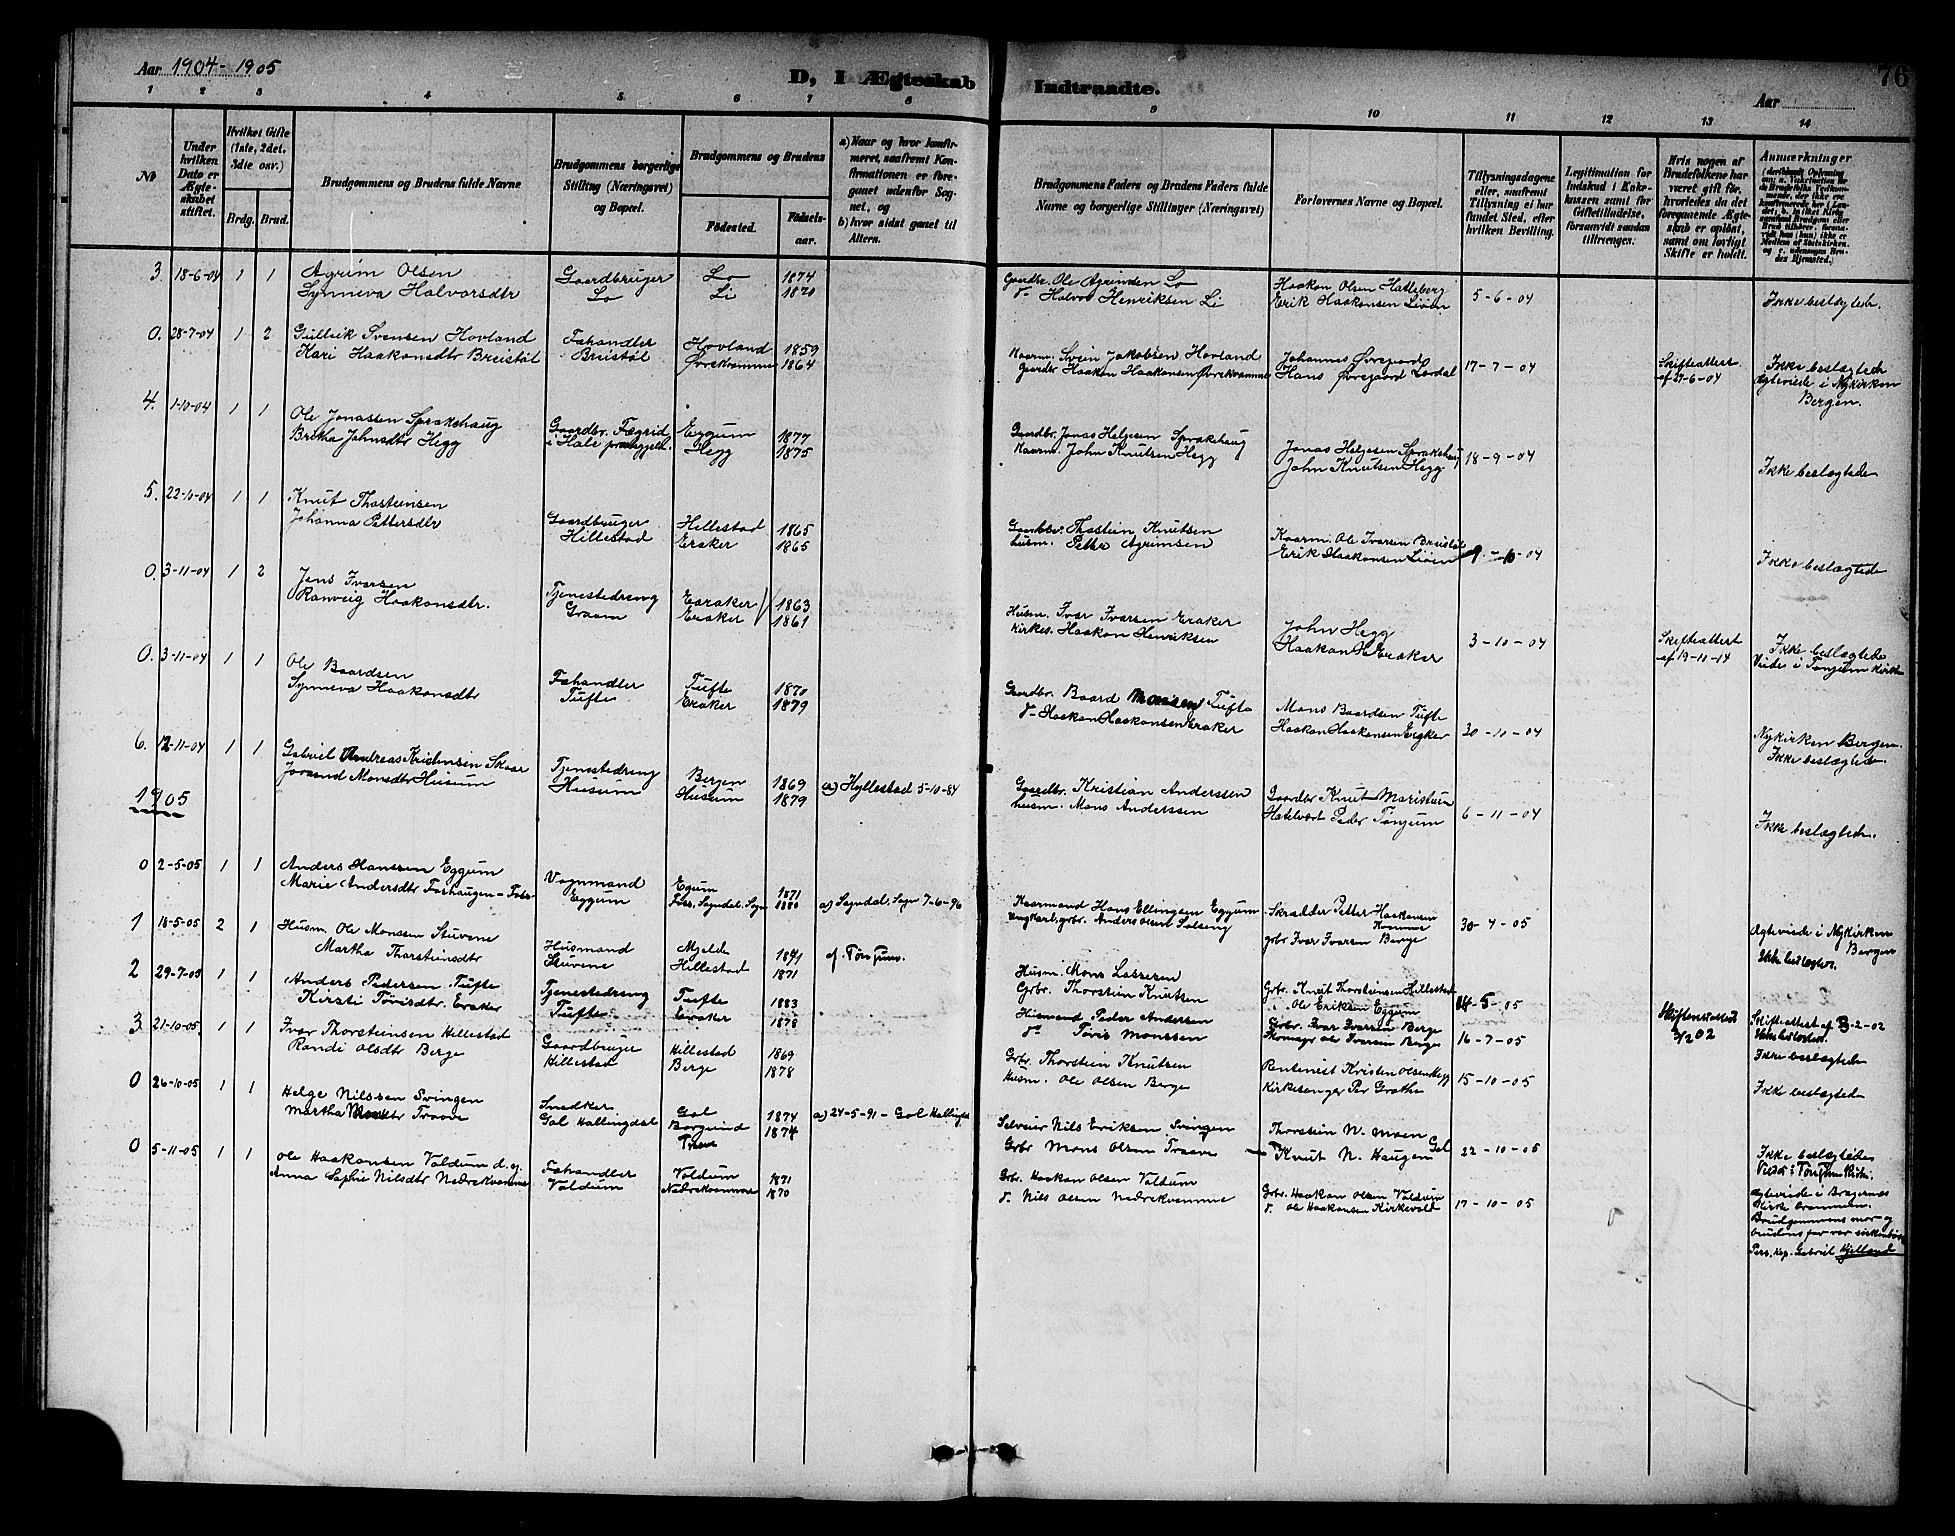 Aar 1904-1905
D, I Ægteskab Indtraadte.
Aar
76
1 2 3 4 5 6 7 8 9 10 11 12 13 14
No
Under hvilken Dato er Ægteskabet stiftet.
Hvilket Gifte (1ste, 2det, 3die osv.)
Brdg. Brud.
Brudgommens og Brudens fulde Navne
Brudgommens borgerlige Stilling (Næringsvei) og Bopæl.
Brudgommens og Brudens
Fødested. Fødselsaar.
a) Naar og hvor konfirmeret, saafremt Konfirmationen er foregaaet udenfor Sognet, og
b) hvor sidst gaaet til Alters.
Brudgommens Faders og Brudens Faders fulde Navne og borgerlige Stillinger (Næringsvei)
Forlovernes Navne og Bopæl.
Tillysningsdagene eller, saafremt Tillysning ei har fundet Sted, efter hvilken Bevilling.
Legitimation for Indskud i Enkekassen samt for Giftetilladelse, forsaavidt saadan tiltrænges.
Hvis nogen af Brudefolkene har været gift før, hvorledes da det foregaaende Ægteskab er opløst, samt om lovligt Skifte er holdt.
Anmærkninger
3. 18-6-04 1 1 Agrim Olsen Gaardbruger Lo 1874 Gaardbr. Ole Agrimsen Lo Haakon Olsen Hatleberg
Synneva Halvorsdtr Lo Li 1870 do Halvor Henriksen Li Erik Haakonsen Liøen 5-6-04 Ikke beslægtede.
0. 28-7-04 1 2 Gullsik Svensen Hovland Fahandler Hovland 1859 Kaarm. Svein Jakobsen Hovland Johannes Øvregaard 17-7-04 Skifteattest Ikke beslægtede
Kari Haakonsdtr Breistøl Breistøl Øvrekvamme 1864 Gaardbr Haakon Haakonsen Øvrekvamme Hans Øvregaard Lærdal af 27-6-04 Ægteviede i Nykirken
Bergen.
4. 1-10-04 1 1 Ole Jonassen Sprakehaug Gaardbr. Fægrid Eggum 1877 Gaardbr. Jonas Helgesen Sprakehaug Jonas Helgesen Sprakehaug 18-9-04
Britha Johnsdtr Hegg i Hafs præstegjeld. Hegg 1875 Kaarm. John Knutsen Hegg John Knutsen Hegg Ikke beslægtede
5. 22-10-04 1 1 Knut Thosteinsen Gaardbruger Hillestad 1865 Gaardbr. Thostein Knutsen Kaarm. Ole Ivarsen Breistøl
Johanna Pettersdtr Hillestad Eraker 1865 husm. Petter Agrimsen Erik Haakonsen Liøen 9-10-04 Ikke beslægtede
0. 3-11-04 1 2 Jens Ivarsen Tjenestedreng Eraker 1863 Husm. Ivar Ivarsen Eraker John Hegg 3-10-04 Skifteattest Ikke beslægtede
Ranveig Haakonsdtr. Graam Eraker 1861 Kirkes. Haakon Henriksen Haakon H Eraker af 19-10-04 Viede i Tønjum Kirke
0. 3-11-04 1 1 Ole Baardsen Fahandler Tufte 1870 Gaardbr. Baard Monsen Tufte Mons Baardsen Tufte
Synneva Haakonsdtr Tufte Eraker 1879 do Haakon Haakonsen Eraker Haakon Haakonsen Eraker 30-10-04 Nykirken Bergen.
Ikke beslægtede.
6. 12-11-04 1 1 Gabriel Andreas Kristensen Skaar Tjenestedreng Bergen 1869 a) Hyllestad 5-10-84 Gaardbr. Kristian Anderssen Gaardbr Knut Maristuen
Jorand Monsdtr Husum Husum Husum 1879 husm. Mons Anderssen Peder Tønjum 6-11-04 Ikke beslægtede.
1905
0 2-5-05 1 1 Anders Hanssen Eggum Vognmand Egum 1871 Kaarmand Hans Ellingsen Eggum Skrædder Petter Haakonsen Kvamme 30-4-05
Marie Andersdtr Foshaugen-Foss Eggum Foss, Sogndal, Sogn 1880 a) Sogndal, Sogn 7-6-96 Ungkarl, grbr. Anders Olsen Solseng grbr Ivar Ivarsen Berge Ægteviede i Nykirken
Bergen
Ikke beslægtet.
1 18-5-05 2 1 Husm. Ole Monssen Stuvene Husmand Mjelde 1841 af. Tønjum. Husm. Mons Lassesen Grbr. Knut Thorsteinsen Hillestad
Martha Thorsteinsdtr Stuvene Hillestad 1871 Grbr. Thorstein Knutsen Ole Eriksen Eggum 14-5-05 Skifteattest af 3-2-02
2 29-7-05 1 1 Anders Pedersen Tufte Tjenestedreng Tufte 1883 Husmand Peder Andersen Grbr. Ivar Ivarsen Berge
Kirsti Torisdtr. Eraker Tufte Eraker 1878 do Toris Monssen Ole Ivarsen Berge 16-7-05 Ikke beslægtede
3. 21-10-05 1 1 Ivar Thorsteinsen Hillestad Gaardbruger Hillestad 1869 Grbr. Thorstein Knutsen Rentenist Kristen Olsen Hegg 15-10-05
Randi Olsdtr Berge Hillestad Berge 1878 Husm. Ole Olsen Berge Kirkesanger Per Grøthe Ikke beslægtede
0 26-10-05 1 1 Helge Nilssen Svingen Snedker Gol 1874 a) 24-5-91 - Gol Hallingdal Selveier Nils Eriksen Svingen Thorstein N. Moen
Martha Monsdtr Traave Gol Hallingdal Borgund 1874 Grbr Mons Olsen Traave Knut N. Haugen Gol 22-10-05 Ikke beslægtede
Viede i Tønjum Kirke.
0 5-11-05 1 1 Ole Haakonsen Voldum d.y. Fahandler Voldum 1871 Grbr. Haakon Olsen Voldum Grbr. Haakon Olsen Voldum
Anna Sophie Nilsdtr Nedrekvamme Voldum Nedrekvamme 1870 do Nils Olsen Nedrekvamme do Ole Haakonsen Kirkevold 17-10-05 Ægteviede i Bragernes
Kirke Drammen.
Brudgommens mor og
brudens far var
Pers. Kap. Gabriel Kielland